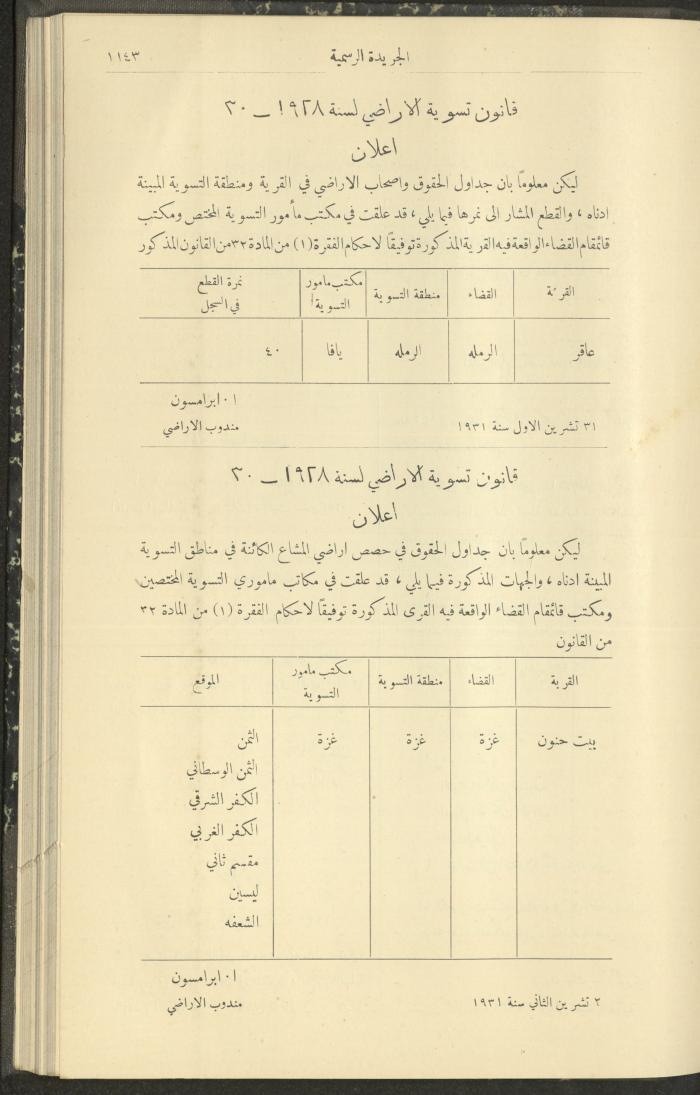 الجريدة الرسمية ١١٤٣
قانون تسوية الاراضي لسنة ١٩٢٨ ــ ٣٠
اعلان
ليكن معلومًا بان جداول الحقوق واصحاب الاراضي في القرية ومنطقة التسوية المبينة
ادناه ، والقطع المشار الى نمرها فيما يلي ، قد علقت في مكتب مأمور التسوية المختص ومكتب
قائمقام القضاء الواقعة فيه القرية المذكورة توفيقًا لاحكام الفقرة (١) من المادة ٣٢ من القانون المذكور
القرية القضاء منطقة التسوية مكتب مامور التسوية نمرة القطع في السجل
عاقر الرمله الرمله يافا ٤٠
ا٠ ابرامسون
٣١ تشرين الاول سنة ١٩٣١ مندوب الاراضي
قانون تسوية الاراضي لسنة ١٩٢٨ ــ ٣٠
اعلان
ليكن معلومًا بان جداول الحقوق في حصص اراضي المشاع الكائنة في مناطق التسوية
المبينة ادناه ، والجهات المذكورة فيما يلي ، قد علقت في مكاتب ماموري التسوية المختصين
ومكتب قائمقام القضاء الواقعة فيه القرى المذكورة توفيقًا لاحكام الفقرة (١) من المادة ٣٢
من القانون
القرية القضاء منطقة التسوية مكتب مامور التسوية الموقع
بيت حنون غزة غزة غزة الثمن
الثمن الوسطاني
الكفر الشرقي
الكفر الغربي
مقسم ثاني
ليسين
الشعفه
ا٠ ابرامسون
٢ تشرين الثاني سنة ١٩٣١ مندوب الاراضي